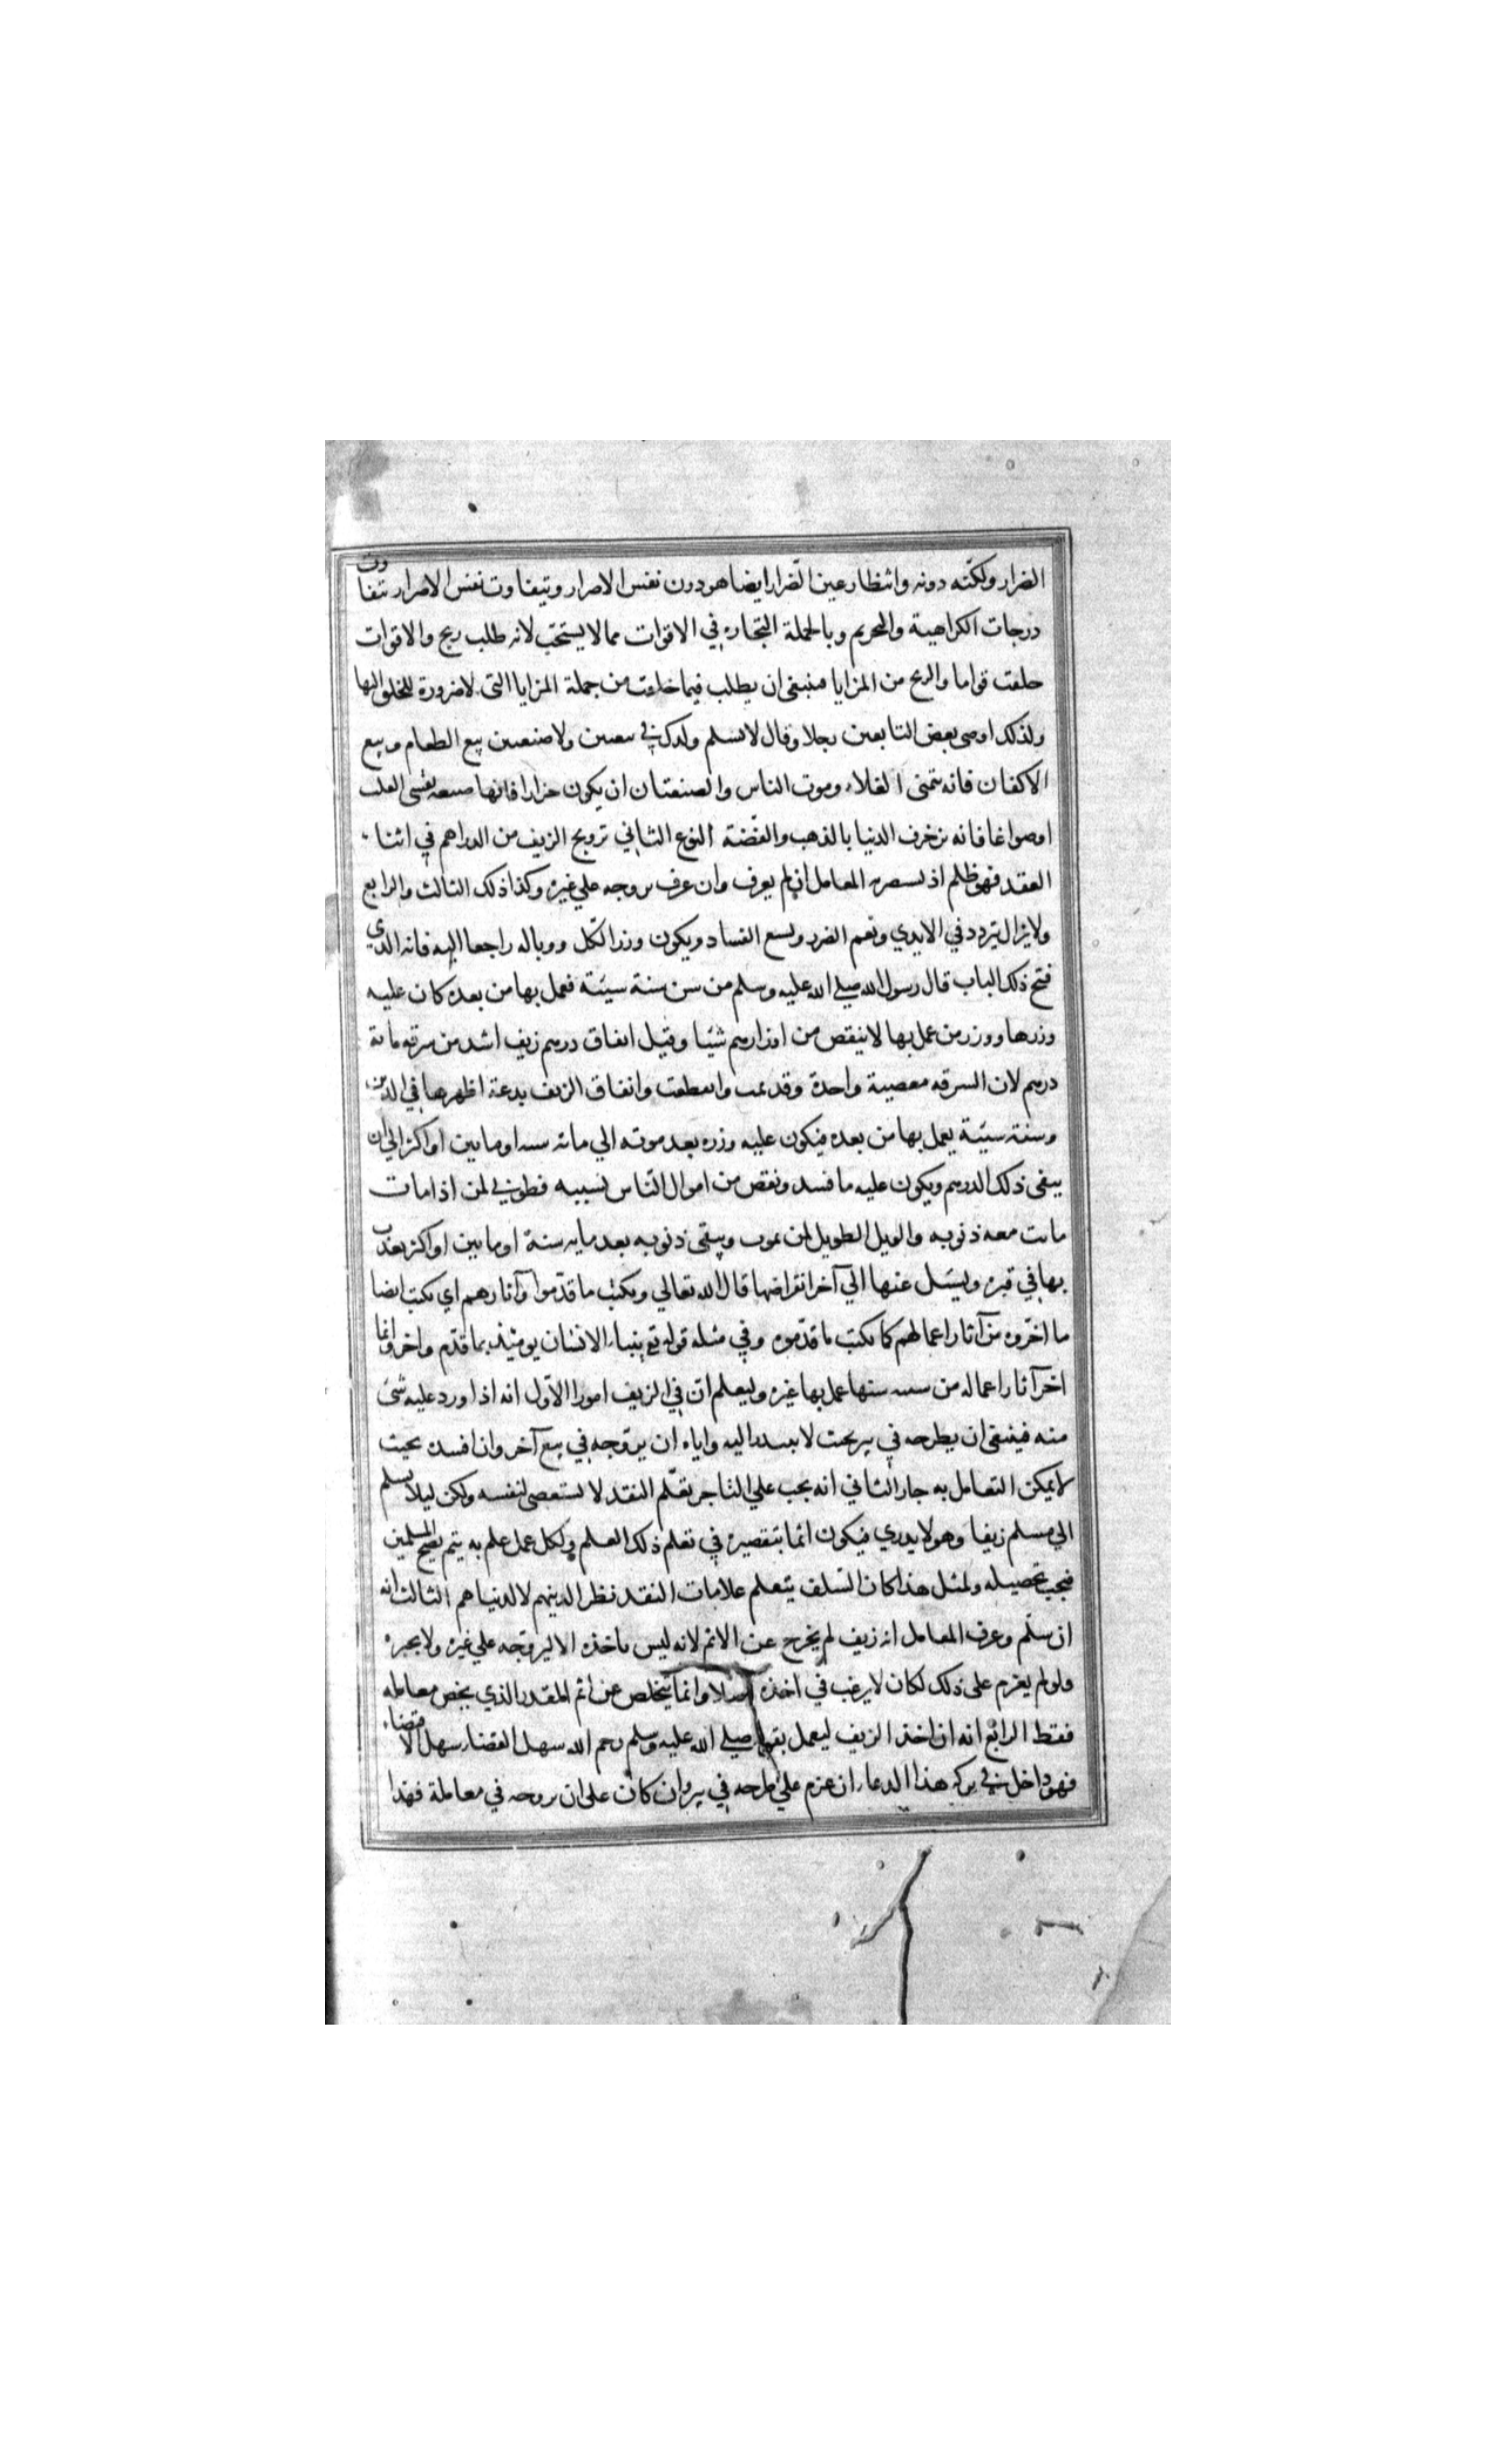 الضرار ولكنه دونه وانتظار عين الضرار ايضا هو دون نفس الاضرار ويتفاوت نفس الاضرار تتفاوت
درجات الكراهية والتحريم وبالجملة التجارة في الاقوات مما لا يستحب لانه طلب ربح والاقوات
خلقت قواما والربح من المزايا فينبغي ان يطلب فيما خلقت من جملة المزايا التي لا ضرورة للخلق اليها
ولذلك اوصي بعض التابعين رجلا وقال لا تسلم ولدك في بيعتين ولا صنعتين بيع الطعام وبيع
الاكفان فانه يتمنى الغلاء وموت الناس والصنعتان ان يكون جزارا فانها صنعة تقسى القلب
او صواغا فانه يزخرف الدنيا بالذهب والفضة النوع الثاني ترويج الزيف من الدراهم في اثناء
العقد فهو ظلم اذ يستضر به المعامل ان لم يعرف وان عرف يروجه علي غيره وكذا ذلك الثالث والرابع
ولا يزال يتردد في الايدي وتعم الضرر ويتسع الفساد ويكون وزر الكل ووباله راجعا اليه فانه الذي
فتح ذلك الباب قال رسول الله صلي الله عليه وسلم من سن سنة سيئة فعمل بها من بعده كان عليه
وزرها ووزر من عمل بها لا ينقص من اوزارهم شيئا وقيل انفاق درهم زيف اشد من سرقة مائة
درهم لان السرقه معصية واحدة وقد تمت وانقطعت وانفاق الزيف بدعة اظهرها في الدين
وسنة سيئة يعمل بها من بعده فيكون عليه وزره بعد موته الي مائة سنه او مايتين او اكثر الي ان
يبقى ذلك الدرهم ويكون عليه ما فسد ونقص من اموال الناس بسببه فطوبي لمن اذا مات
ماتت معه ذنوبه والويل الطويل لمن يموت ويبقى ذنوبه بعد مايه سنة او مايتين او اكثر يعذب
بها في قبره ويسئل عنها الي آخر انقراضها قال الله تعالي ونكتب ما قدموا وآثارهم اي نكتب ايضا
ما اخروه من آثار اعمالهم كما نكتب ما قدموه وفي مثله قوله تع ينباء الانسان يومئذ بما قدم واخر وانما
اخر آثار اعماله من سنه سنها عمل بها غيره وليعلم ان في الزيف امورا الاول انه اذا ورد عليه شئ
منه فينبغي ان يطرحه في بير بحيث لا يمتد اليه واياه ان يروجه في بيع آخر وان افسده بحيث
لا يمكن التعامل به جاز الثاني انه يجب علي التاجر تعلم النقد لا ليستقصي لنفسه ولكن ليلا يسلم
الي مسلم زيفا وهو لا يدري فيكون اثما بتقصيره في تعلم ذلك العلم ولكل عمل علم به يتم نصح المسلمين
فيجب تحصيله ولمثل هذا كان السلف يتعلم علامات النقد نظرا لدينهم لا لدنياهم الثالث انه
ان سلم وعرف المعامل انه زيف لم يخرج عن الاثم لانه ليس ياخذه الا ليروجه علي غيره ولا يخبره
ولو لم يعزم على ذلك لكان لا يرغب في اخذه اصلا وانما يتخلص عن اثم القدر الذي يخص معامله
فقط الرابع انه ان اخذ الزيف ليعمل بقوله صلي الله عليه وسلم رحم الله سهل القضاء سهل الاقتضاء
فهو داخل في بركة هذا الدعاء ان عزم علي طرحه في بير وان كان على ان يروجه في معاملة فهذا